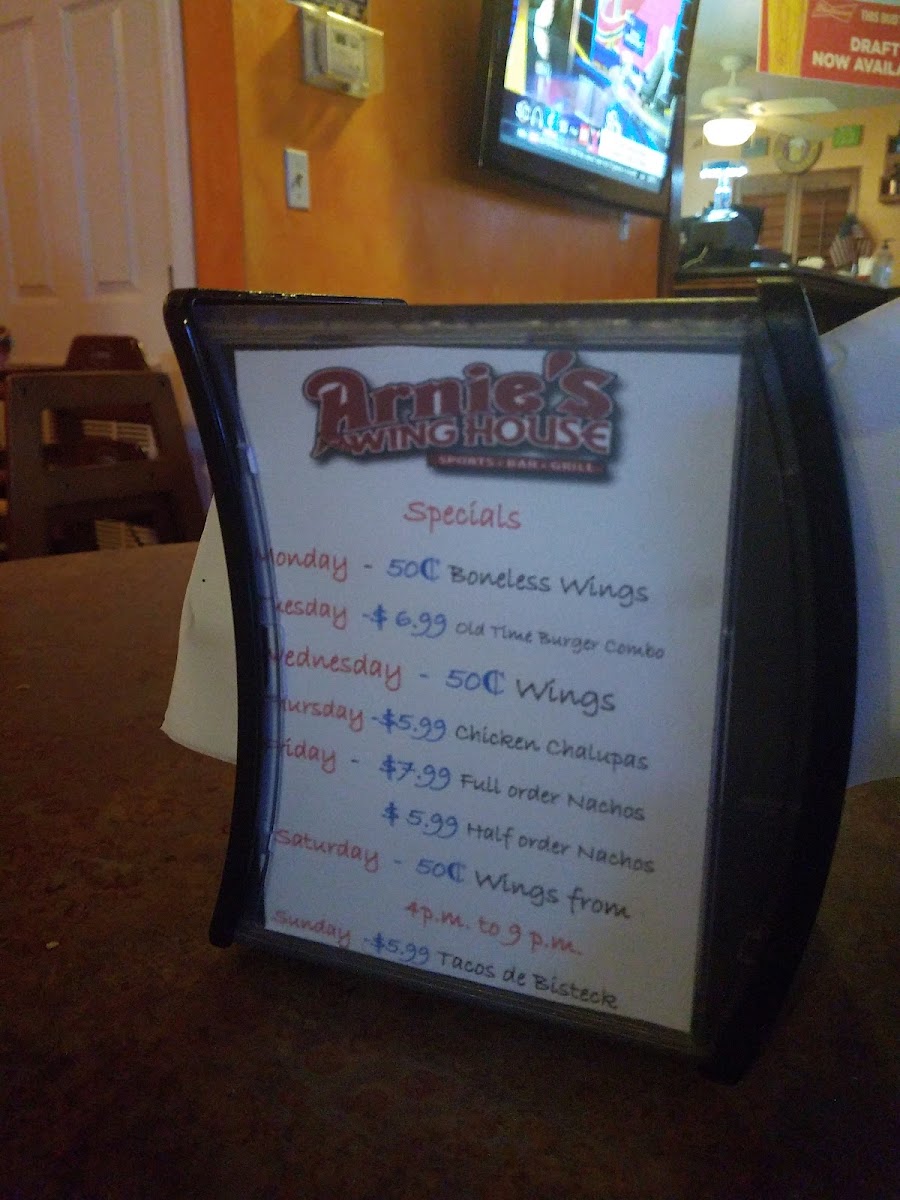 THIS BUD
DRAFT
NOW AVAILA
Arnie's
WING HOUSE
SPORTS • BAR • GRILL
Specials
Monday - 50₵ Boneless Wings
Tuesday -$6.99 Old Time Burger Combo
Wednesday - 50₵ Wings
Thursday -$5.99 Chicken Chalupas
Friday - $7.99 Full order Nachos
$5.99 Half order Nachos
Saturday - 50₵ Wings from
4p.m. to 9 p.m.
Sunday -$5.99 Tacos de Bisteck